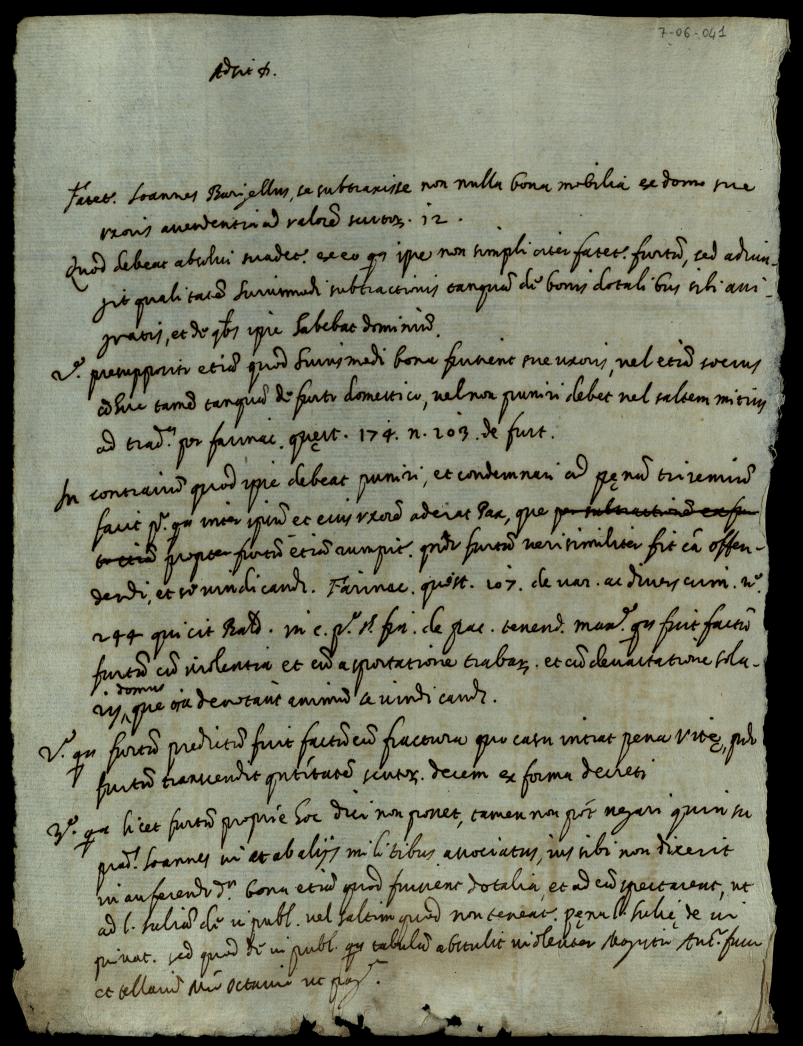 7-06-041
Fatet.r Ioannes Barisellus, se subtraxisse non nulla bona mobilia ex domo sue
uxoris ad valorē scutor. 12.
Quod debeat absolui suadet.r ex eo qa ipse non simpliciter fatet.r furtū, sed adiun-
git qualitatē huiusmodi subtractionis tanquā de bonis dotalibus sibi assi-
gnatis, et de qbs ipse habebat dominiū.
2.o presupposito etiā quod huiusmodi bona fuissent sue uxoris, vel etiā socrus
adhuc tamē tanquā de furto domestico, vel non puniri debet vel saltem mitius
ad trad.a per farinac. quęst. 174. n. 203. de furt.
In contrariū quod ipse debeat puniri, et condemnari ad pęnā triremiū
facit p.o qa inter ipsū et eius uxorē aderat Pax, que per subtractionē
propter furtū etiā rumpit.r quādo furtū verisimiliter fit cā offen-
dendi, et se vindicandi. Farinac. quest. 107. de var. ac divers crim. n.o
244 qui cit Bald. in c. p.o §. fin. de pac. tenend. max.e qa fuit factū
furtū cū violentia et cū asportatione trabar. et cū devastatione sola-
rij, domus que oīa denotant animū se vindicandi.
2.o qa furtū predictū fuit factū cū fractura quo casu intrat pena vitę, qdo
furtū transcendit qntitatē scutor. decem ex forma decreti
3.o qa licet furtū proprie hoc dici non posset, tamen non pōt negari quin su
prad.s Ioannes uti ab alijs militibus associatus, ius sibi non dixerit
in auferendo d.a bona etiā quod fuissent dotalia, et ad eū spectarent, ut
ad l. Iuliā de ui publ. vel saltim quod non teneat.r pęna l. Iulię de ui
privat. sed quod de ui publ. qa tabulā abstulit violenter Ant.
et Octavio ut